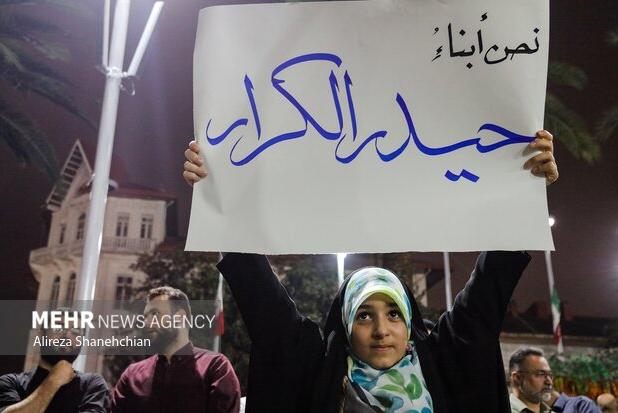 نحن أبناءُ
حيدر الكرار
MEHR NEWS AGENCY
Alireza Shanehchian